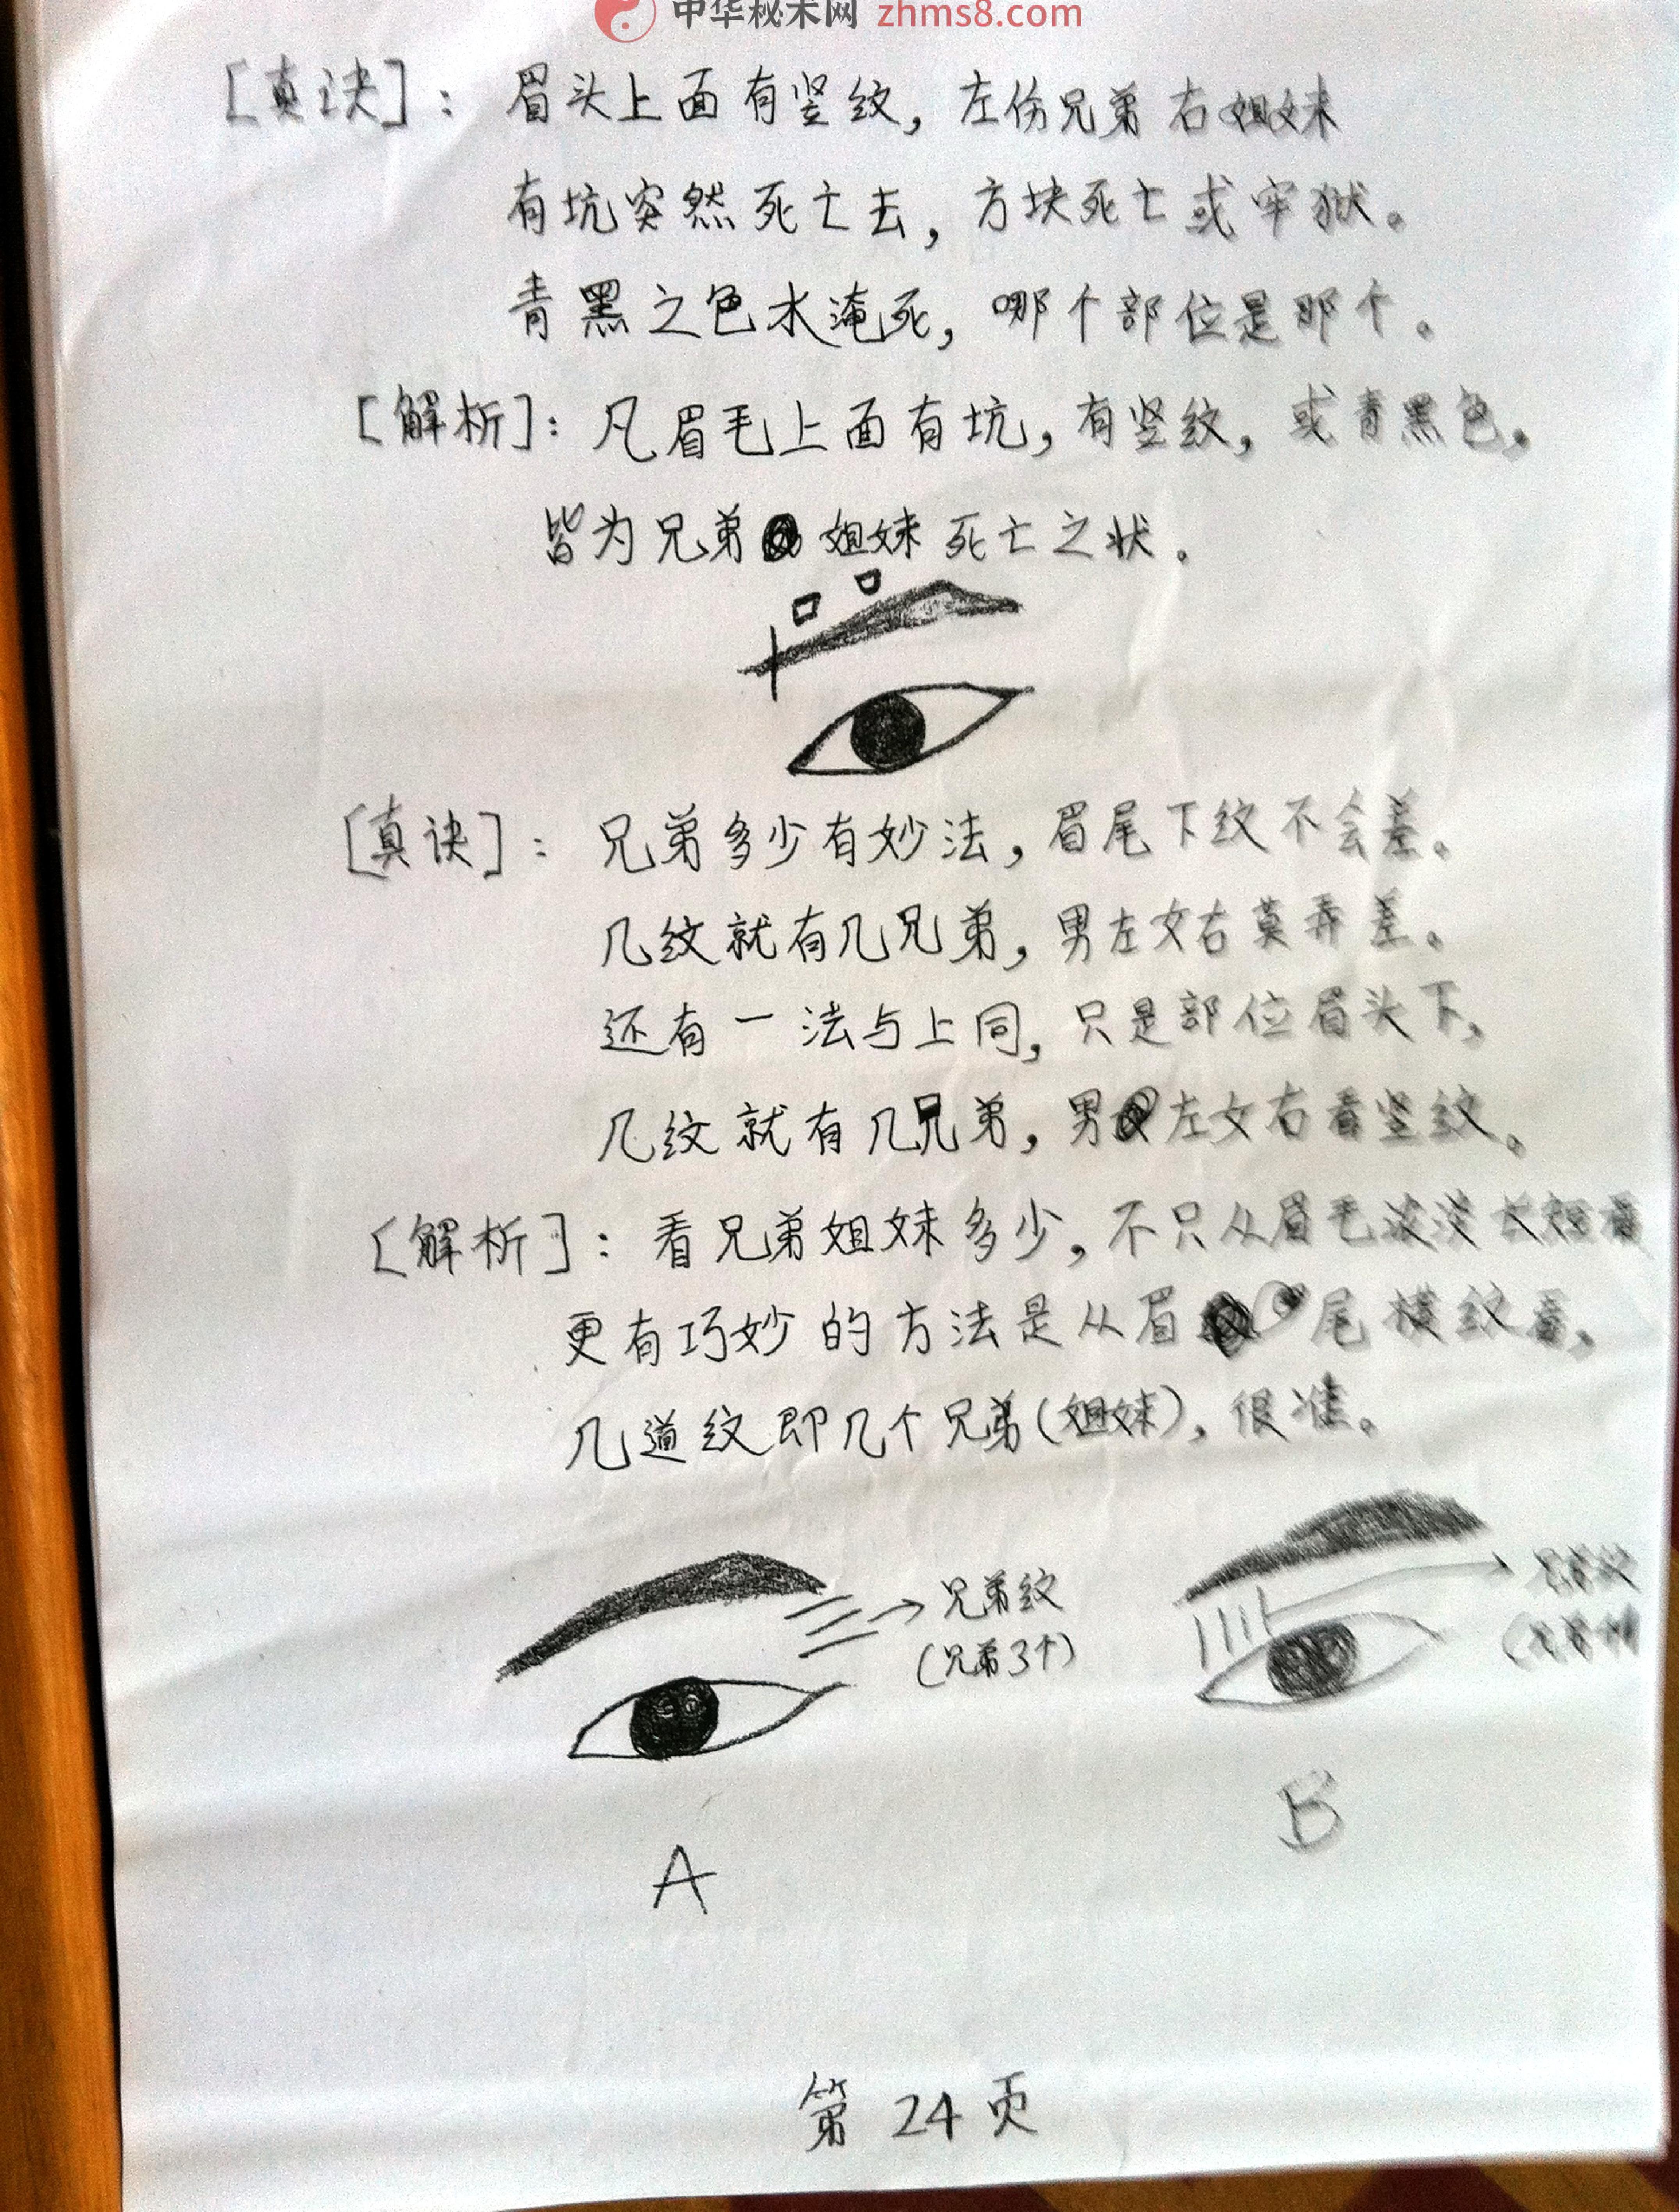 中华秘术网 zhms8.com
[真诀]：眉头上面有竖纹，左伤兄弟右姐妹
有坑突然死亡去，方块死亡或牢狱。
青黑之色水淹死，哪个部位是那个。
[解析]：凡眉毛上面有坑，有竖纹，或青黑色，
皆为兄弟姐妹死亡之状.
[真诀]：兄弟多少有妙法，眉尾下纹不会差。
几纹就有几兄弟，男左女右莫弄差。
还有一法与上同，只是部位眉头下，
几纹就有几兄弟，男左女右看竖纹。
[解析]：看兄弟姐妹多少，不只从眉毛浓淡长短看
更有巧妙的方法是从眉尾横纹看，
几道纹即几个兄弟(姐妹)，很准。
兄弟纹
(兄弟3个)
兄弟纹
A
B
第 24 页